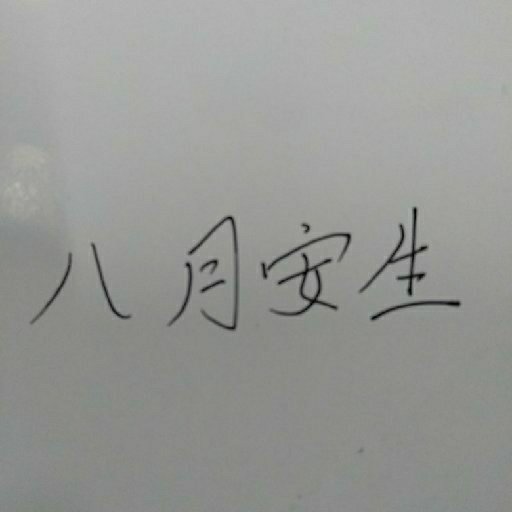 八月安生